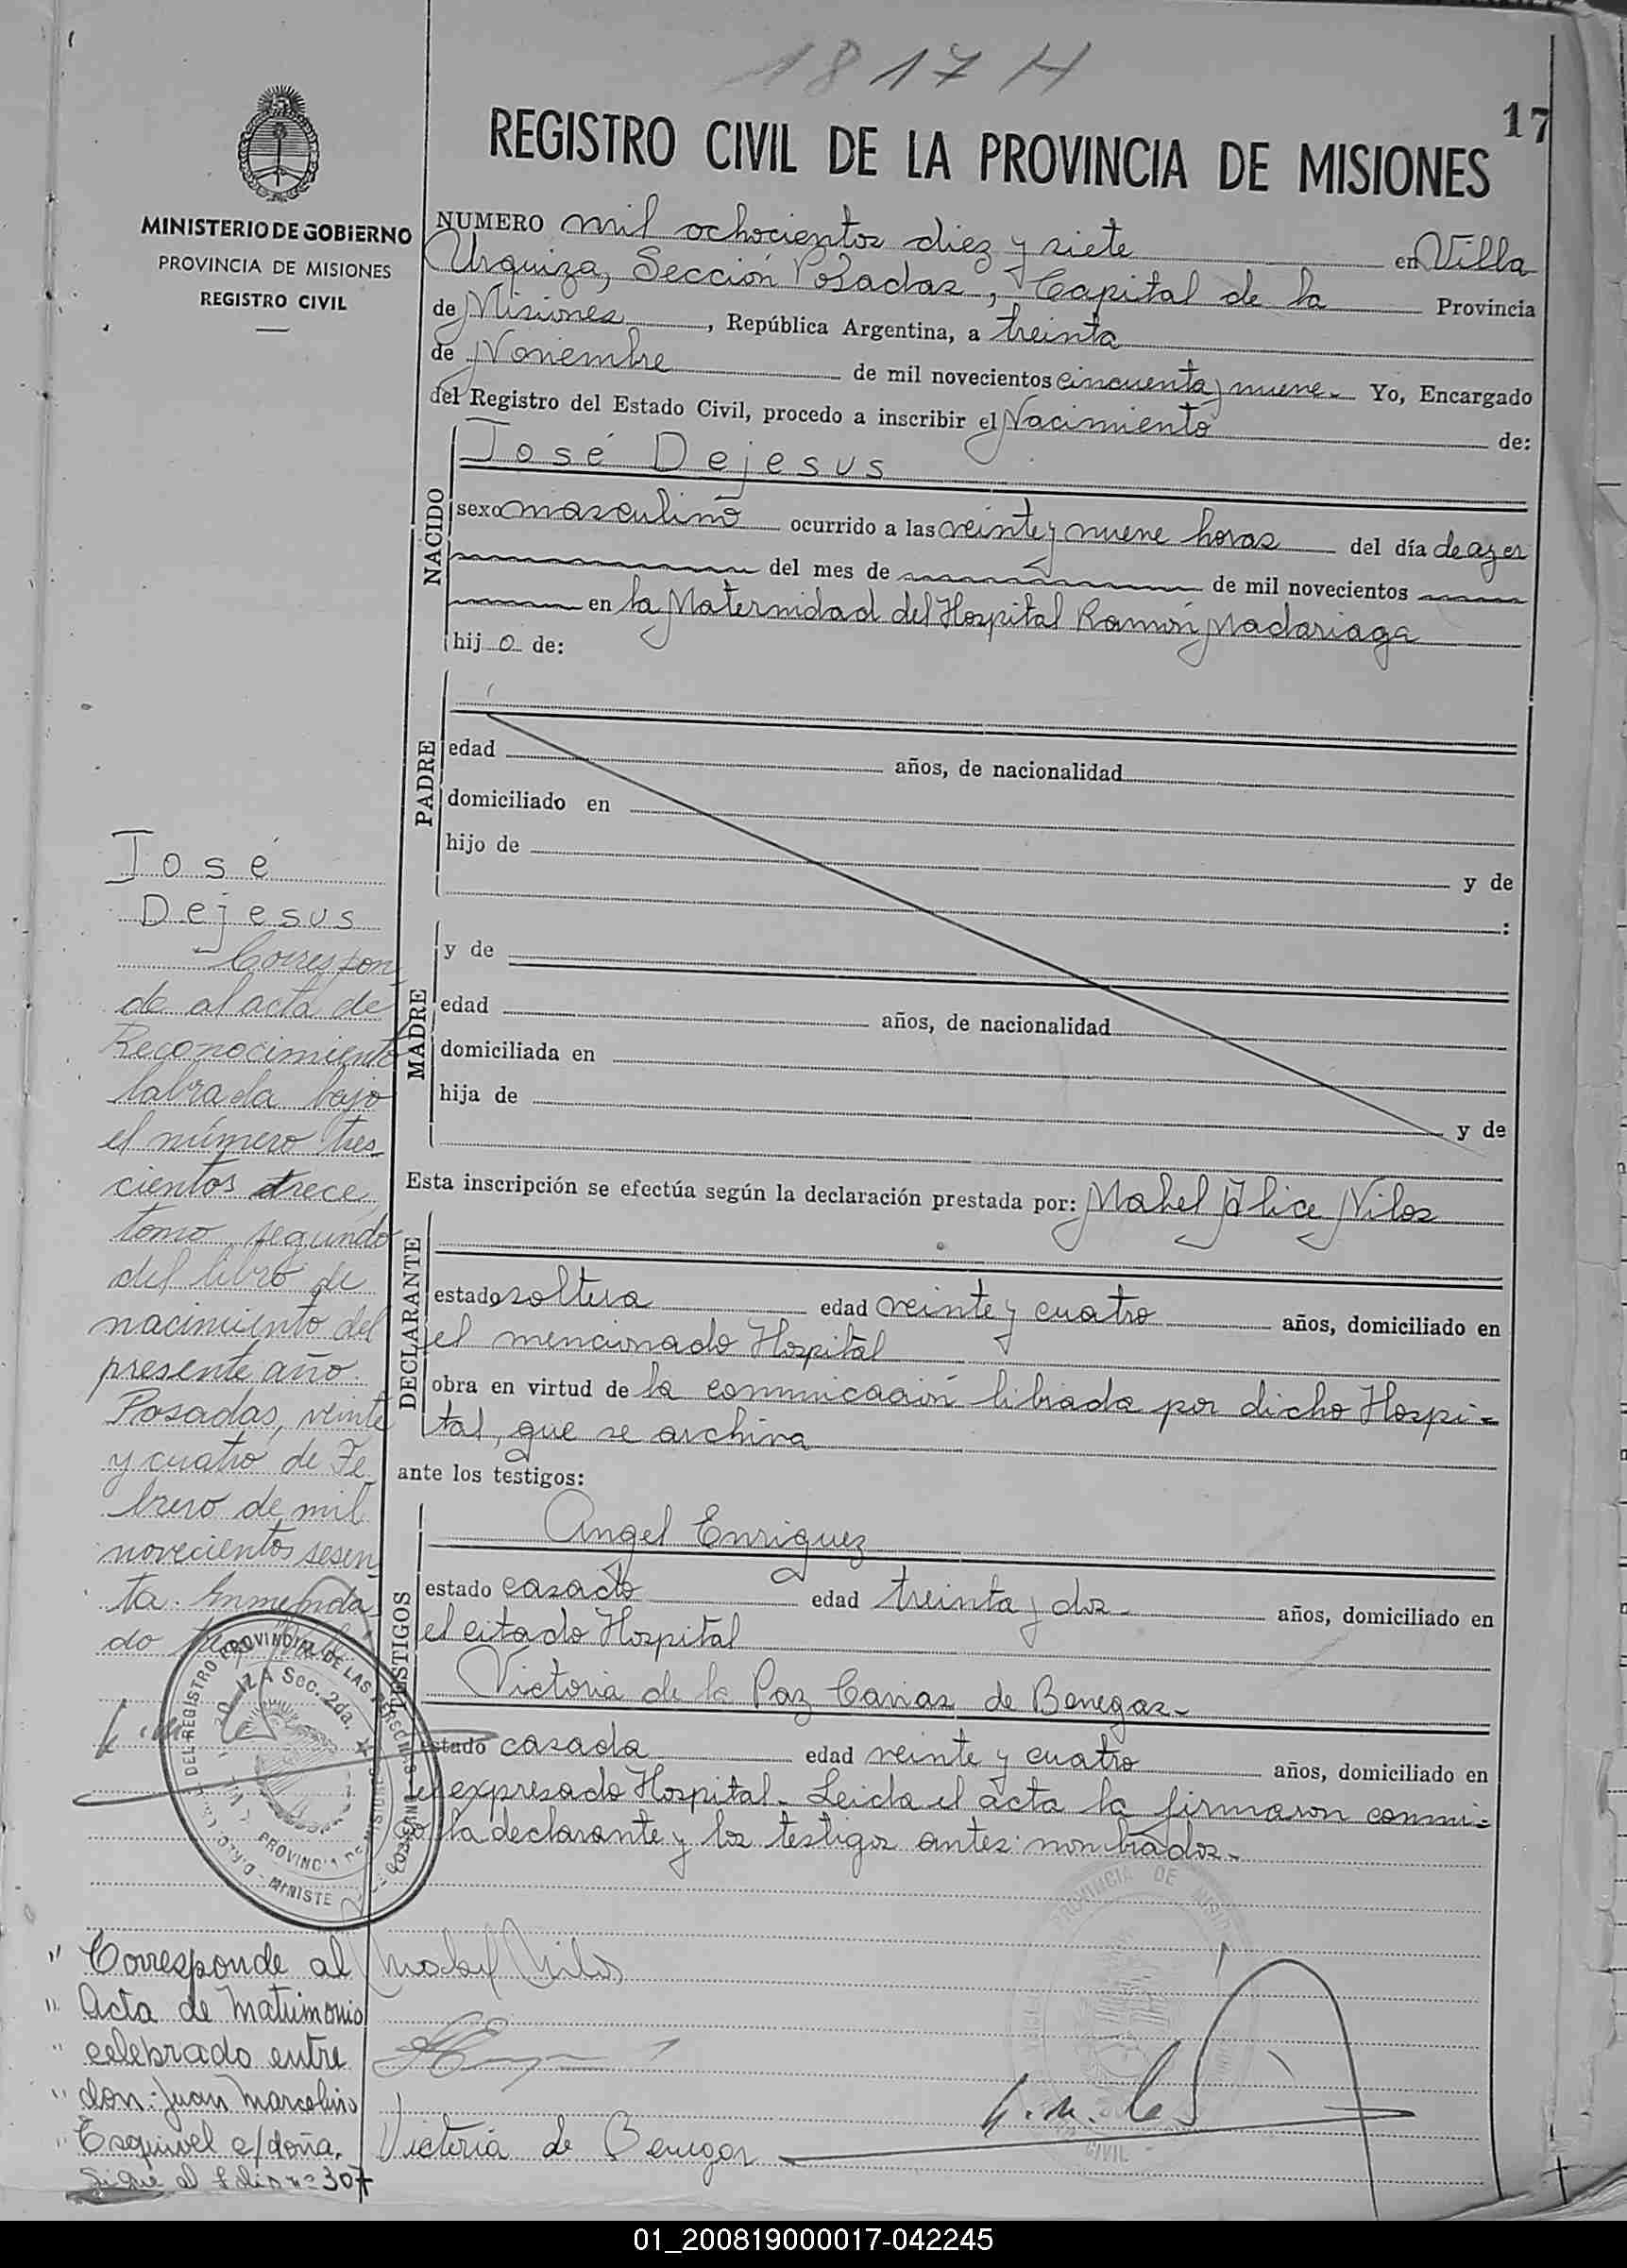 1817 H
17
REGISTRO CIVIL DE LA PROVINCIA DE MISIONES
MINISTERIO DE GOBIERNO
PROVINCIA DE MISIONES
REGISTRO CIVIL
NUMERO mil ochocientos diez y siete en Villa
Urquiza, Sección Posadas, Capital de la Provincia
de Misiones, República Argentina, a treinta
de Noviembre de mil novecientos cincuenta y nueve.- Yo, Encargado
del Registro del Estado Civil, procedo a inscribir el Nacimiento de:
NACIDO
José Dejesus
sexo masculino ocurrido a las veinte y nueve horas del día de ayer
del mes de de mil novecientos
en la Maternidad del Hospital Ramón Madariaga
hijo de:
PADRE
edad años, de nacionalidad
domiciliado en
hijo de y de
:
MADRE
y de
edad años, de nacionalidad
domiciliada en
hija de y de
Esta inscripción se efectúa según la declaración prestada por: Mabel Alice Nilos
DECLARANTE
estado soltera edad veinte y cuatro años, domiciliado en
el mencionado Hospital
obra en virtud de la comunicación librada por dicho Hospi-
tal, que se archiva
ante los testigos:
TESTIGOS
Angel Enriquez
estado casado edad treinta y dos años, domiciliado en
el citado Hospital
Victoria de la Paz de Benegas.-
estado casada edad veinte y cuatro años, domiciliado en
el expresado Hospital.- Leida el acta la firmaron conmi-
go la declarante y los testigos antes nombrados.-
José
Dejesus
Correspon-
de al acta de
Reconocimiento
labrada bajo
el número tres-
cientos trece,
tomo segundo
del libro de
nacimiento del
presente año.
Posadas, veinte
y cuatro de Fe-
brero de mil
novecientos sesen-
ta. Enmenda-
do
DEL REGISTRO PROVINCIAL DE LAS PERSONAS
Sec. 2da.
PROVINCIA DE MISIONES
MINISTE
" Corresponde al
" Acta de Matrimonio
" celebrado entre
" don: Juan Marcelino
" Esquivel c/doña.
Sigue al folio nº 307
Mabel Nilos
Victoria de Benegas
PROVINCIA DE
CIVIL
01_200819000017-042245